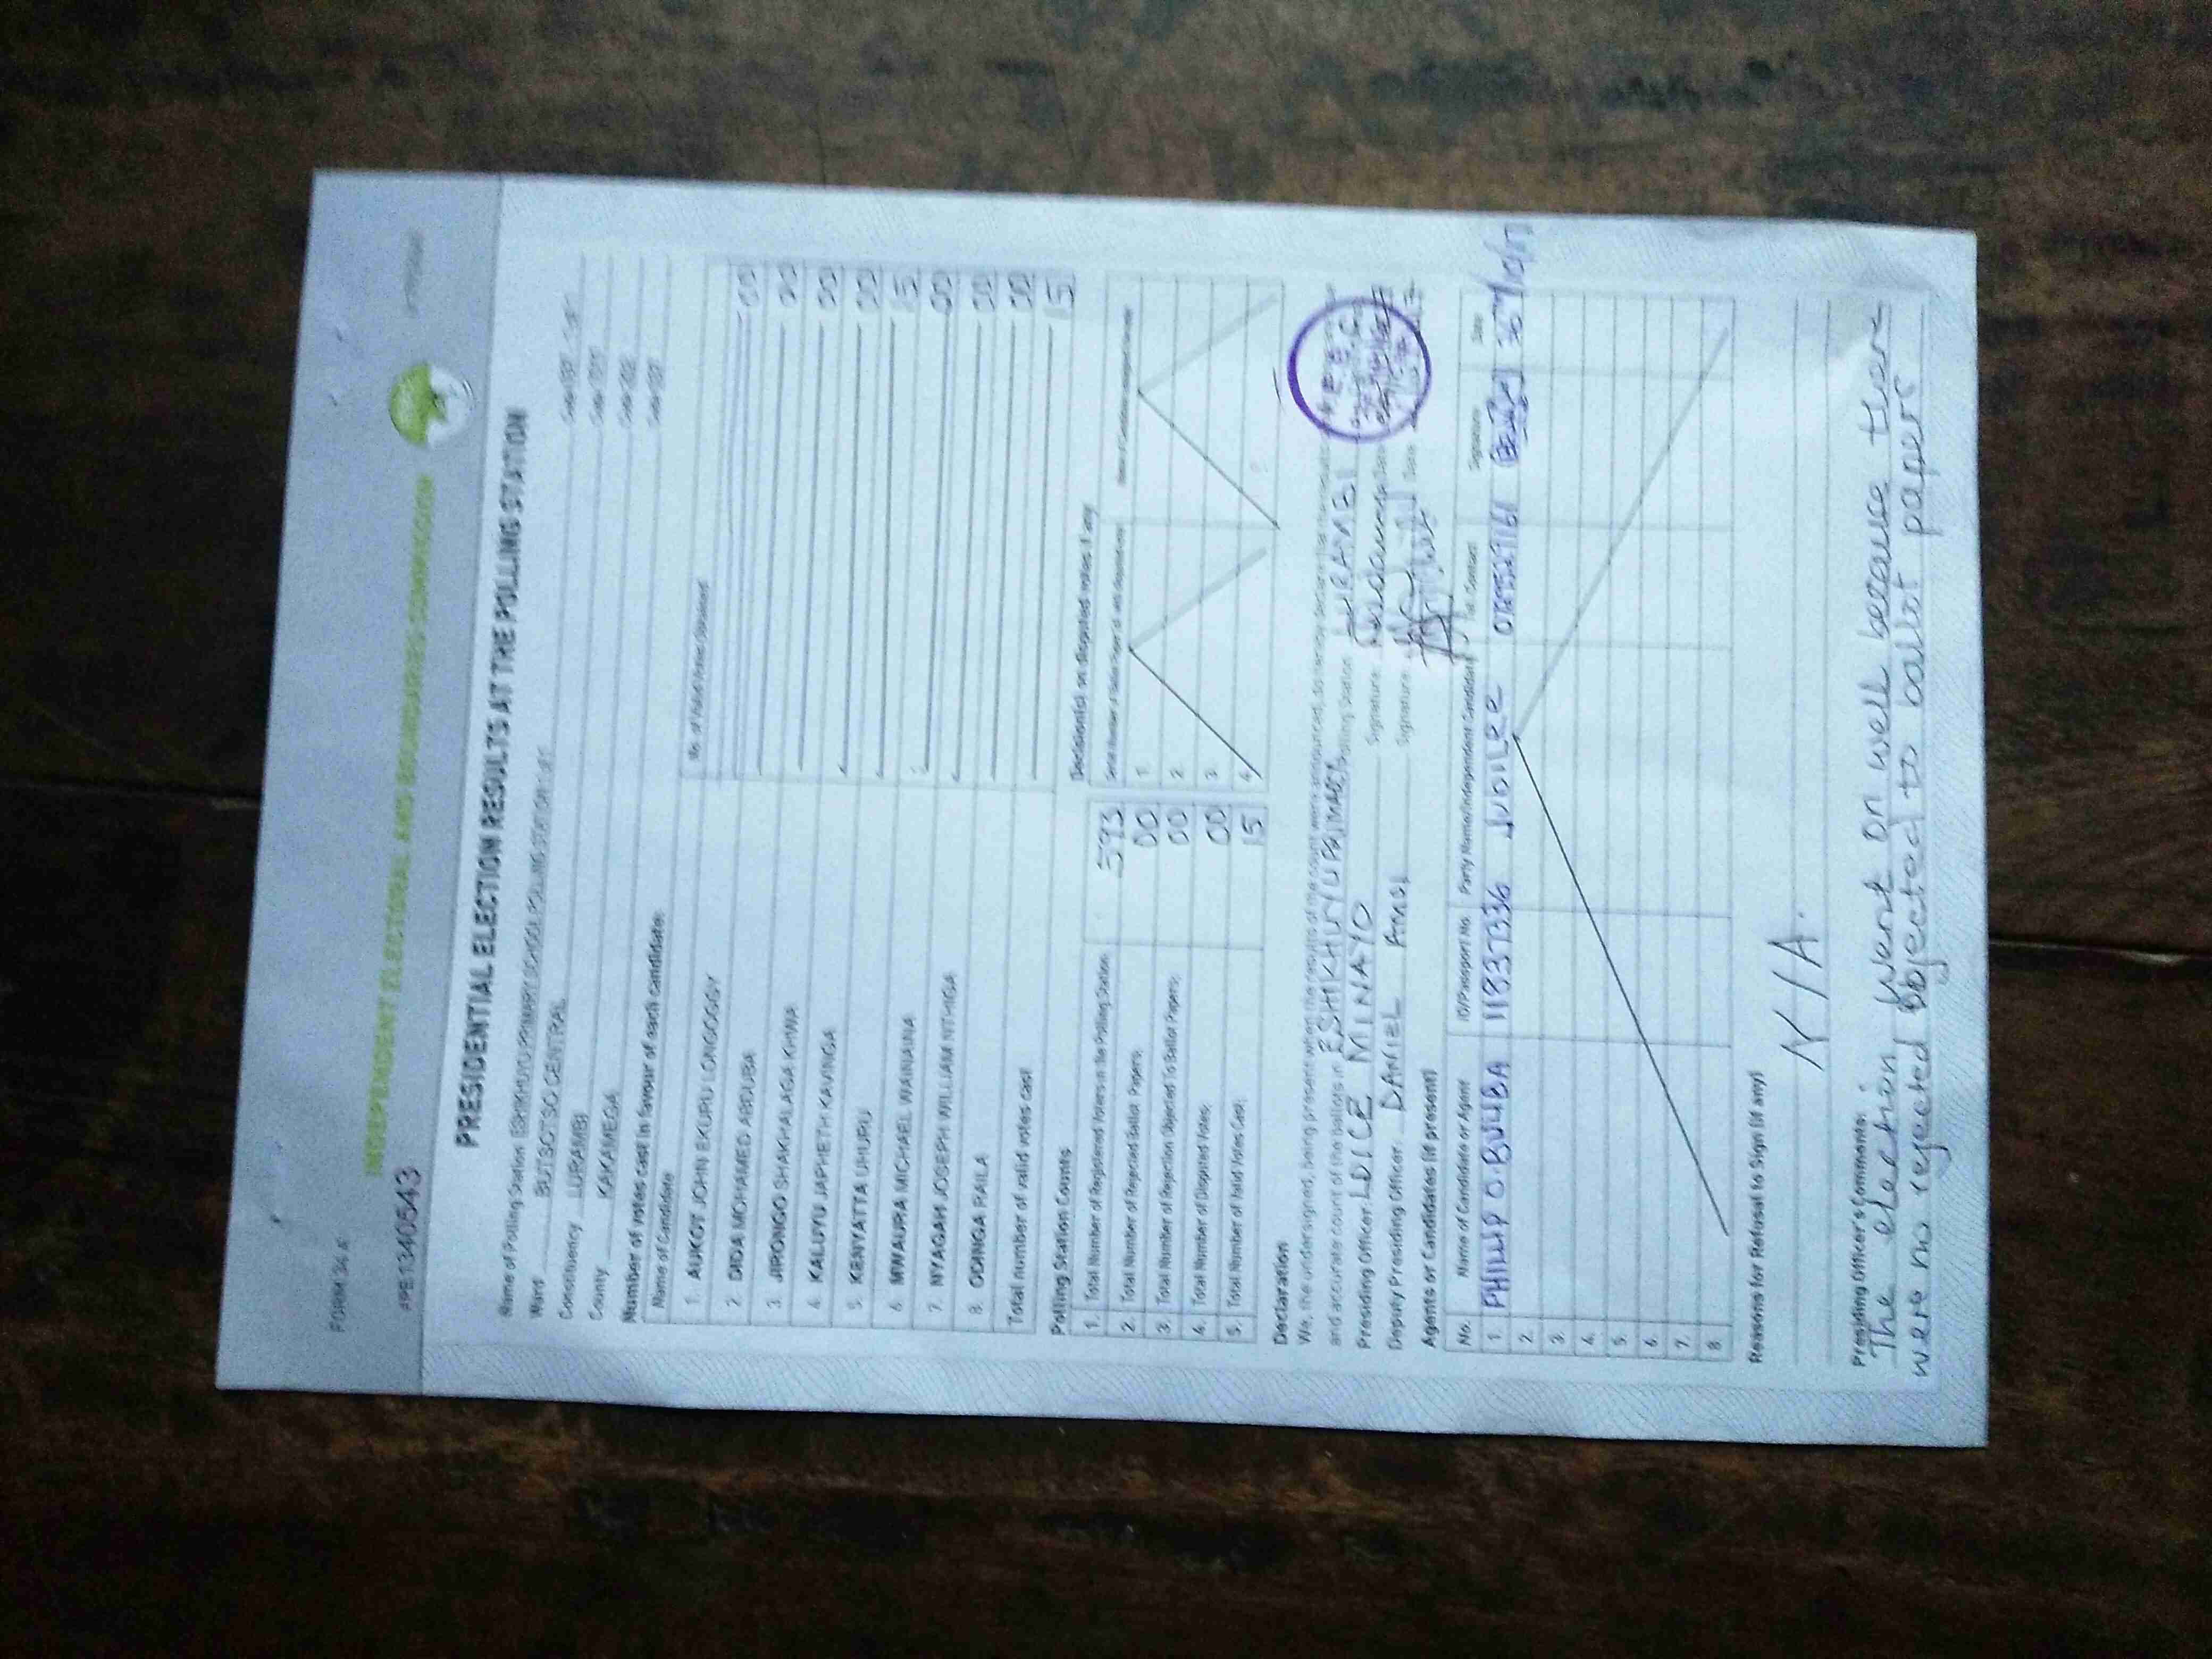 FORM 34 A
PE1340543
INDEPENDENT ELECTORAL AND BOUNDARIES COMMISSION
PRESIDENTIAL ELECTION RESULTS AT THE POLLING STATION
Name of Polling Station ESHIKHUYU PRIMARY SCHOOL POLLING STATION Code
Ward BUTSOTSO CENTRAL Code
Constituency LURAMBI Code
County KAKAMEGA Code
Number of votes cast in favour of each candidate:
Name of Candidate No. of Valid Votes Obtained
1. AUKOT JOHN EKURU LONGOGGY 00
2. DIDA MOHAMED ABDUBA 00
3. JIRONGO SHAKHALAGA KHWA 00
4. KALUYU JAPHETH KAVINGA 00
5. KENYATTA UHURU 15
6. MWAURA MICHAEL WAINAINA 00
7. NYAGAH JOSEPH WILLIAM NTHIGA 00
8. ODINGA RAILA 00
Total number of valid votes cast 15
Polling Station Counts Decision(s) on disputed votes if any
1. Total Number of Registered Voters in the Polling Station 593
2. Total Number of Rejected Ballot Papers: 00 1.
3. Total Number of Rejection Objected To Ballot Papers: 00 2.
4. Total Number of Disputed Votes: 00 3.
5. Total Number of Valid Votes Cast: 15 4.
Declaration
We, the undersigned, being present when the results of the count were announced, do hereby declare that the results
and accurate count of the ballots in ESHIKHUYU PRIMARY Polling Station LURAMBI
Presiding Officer: LOICE MINAYO Signature: Date
Deputy Presiding Officer: DANIEL AMBI Signature: Date
Agents or Candidates (if present)
No. Name of Candidate or Agent ID/Passport No. Party Name/Independent Candidate Tel. Contact Signature Date
1. PHILLIP O BULUBA 11837336 JUBILEE
2.
3.
4.
5.
6.
7.
8.
Reasons for Refusal to Sign (if any)
N/A.
Presiding Officer's Comments:
The election went on well because there
were no rejected objected to ballot papers